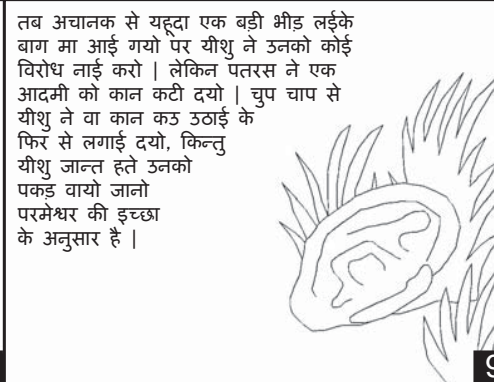 तब अचानक से यहूदा एक बड़ी भीड़ लईके
बाग मा आई गयो पर यीशु ने उनको कोई
विरोध नाई करो | लेकिन पतरस ने एक
आदमी को कान कटी दयो | चुप चाप से
यीशु ने वा कान कउ उठाई के
फिर से लगाई दयो, किन्तु
यीशु जान्त हते उनको
पकड़ वायो जानो
परमेश्वर की इच्छा
के अनुसार है |
9